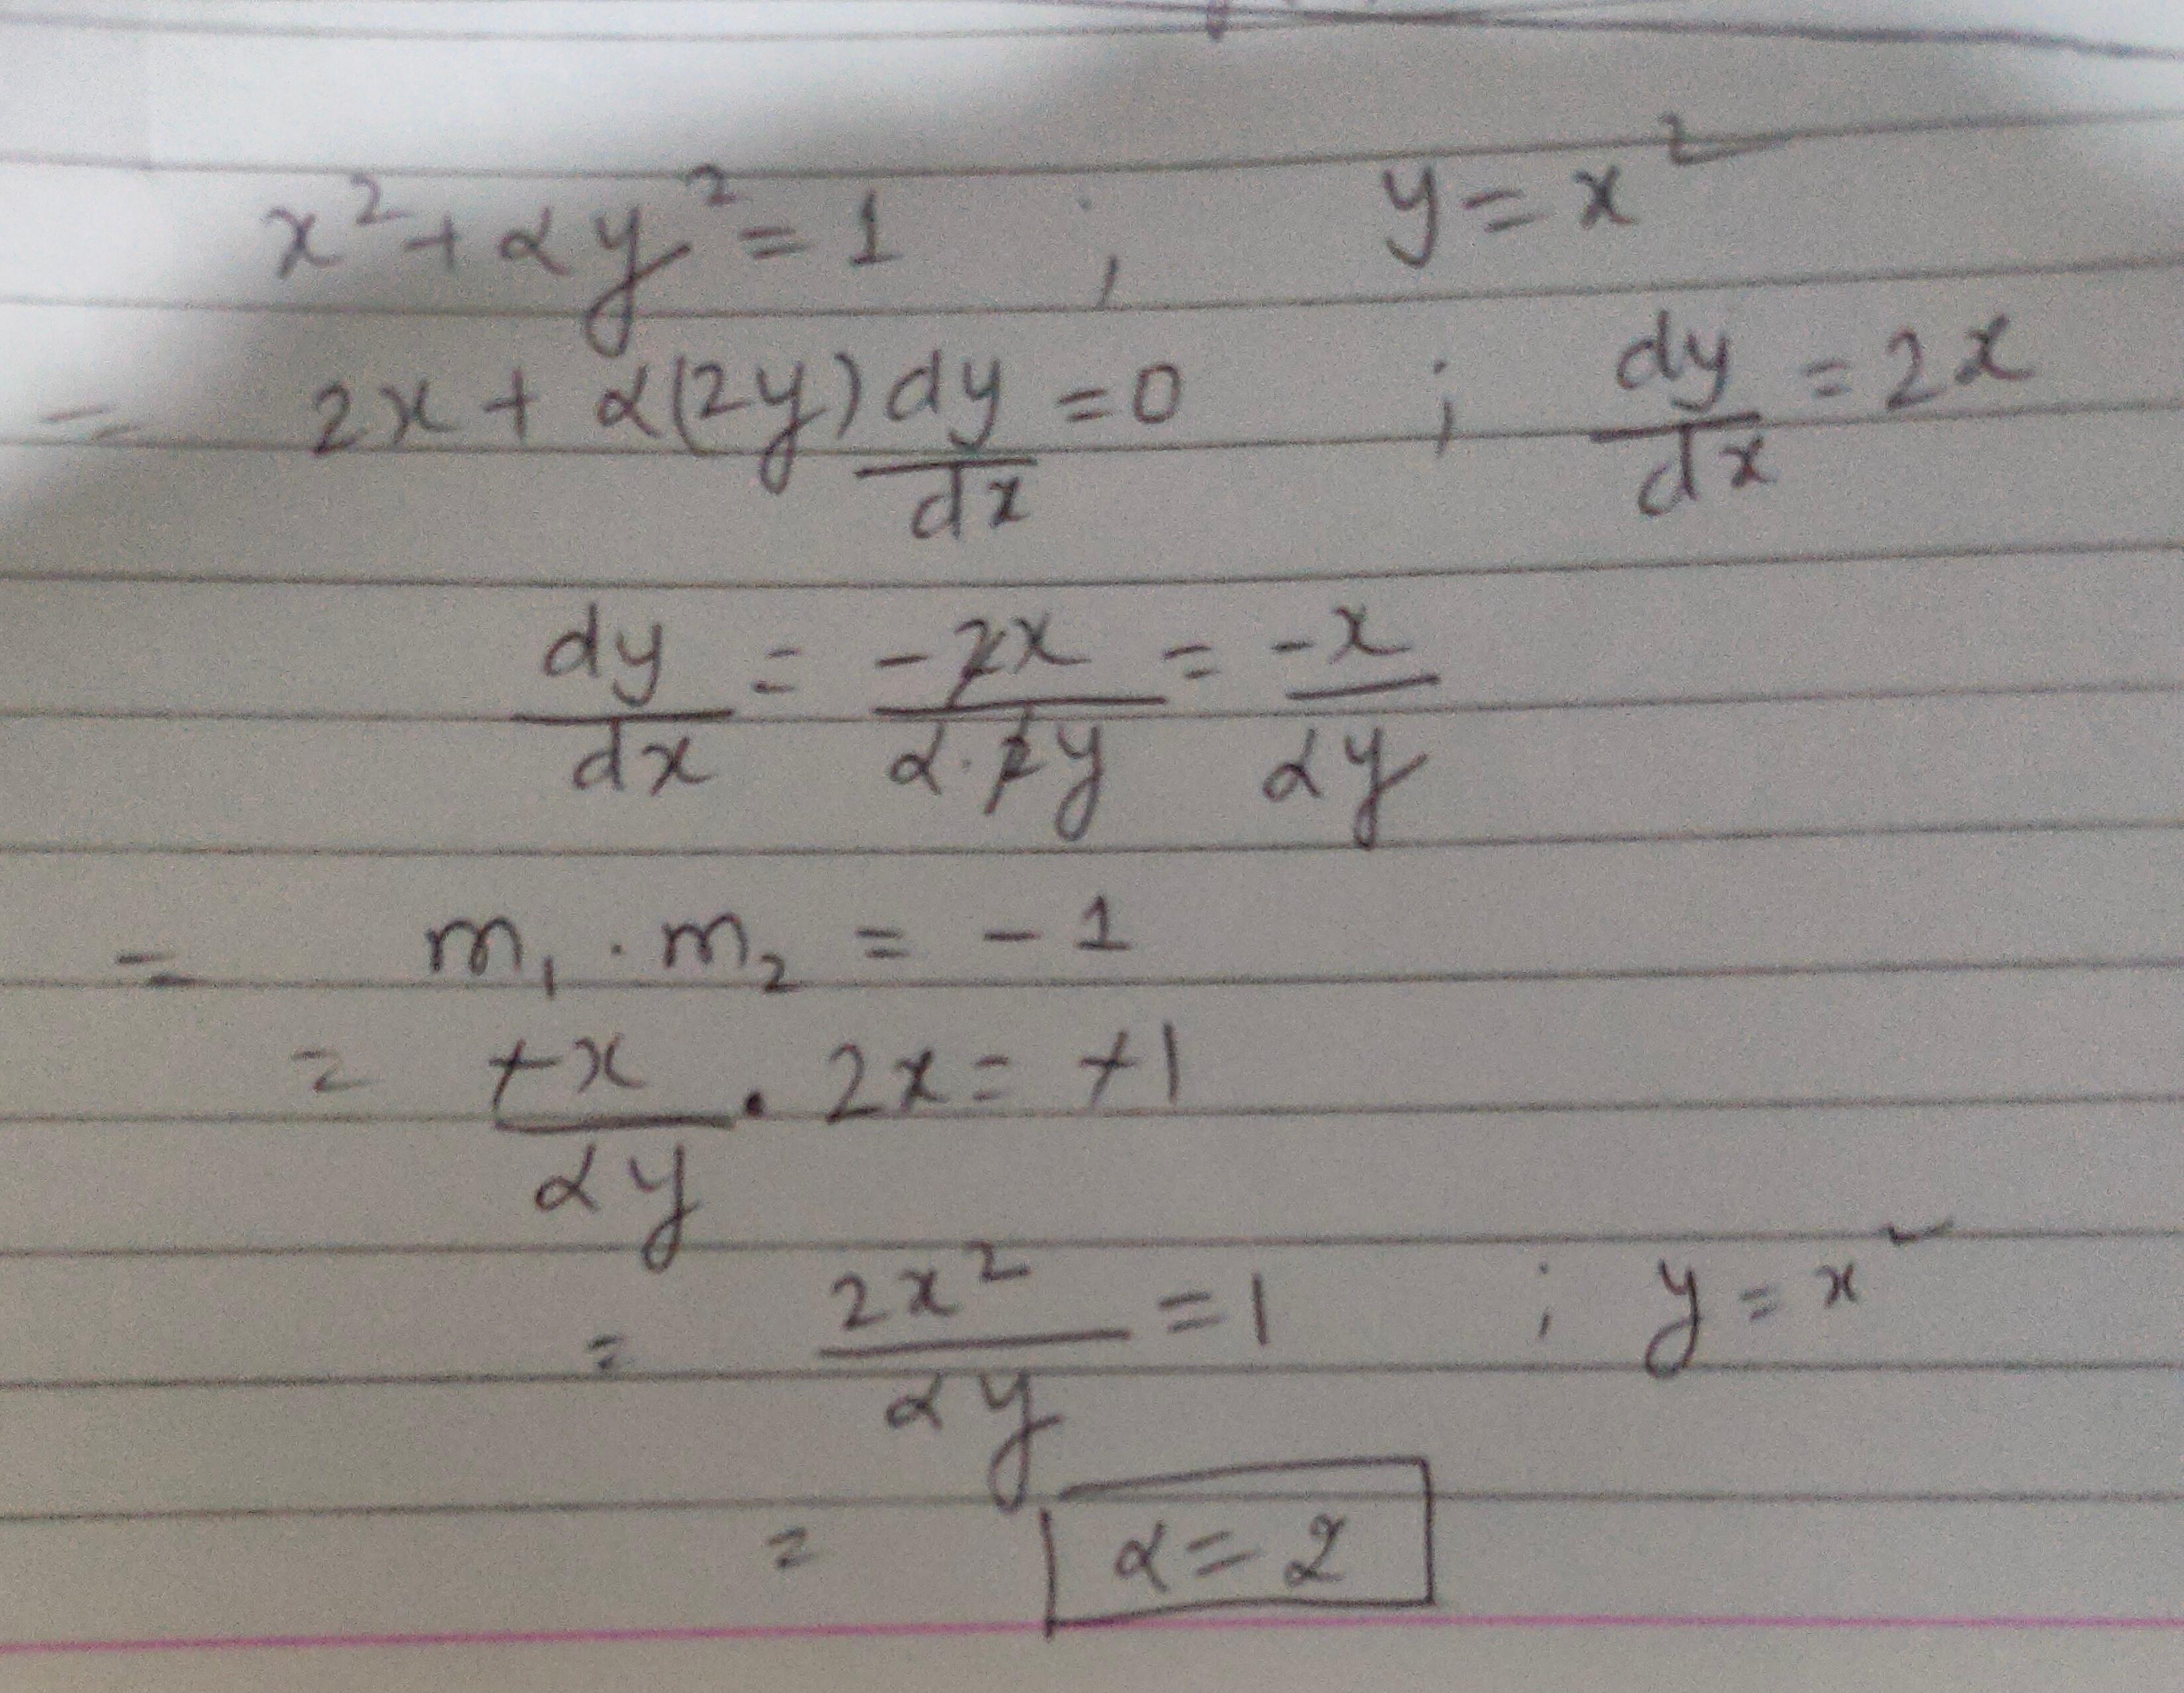 x² + αy² = 1 ; y = x²
= 2x + α(2y) dy/dx = 0 ; dy/dx = 2x
dy/dx = -2x/α·2y = -x/αy
= m₁ · m₂ = -1
= +x/αy · 2x = +1
= 2x²/αy = 1 ; y = x²
= α = 2